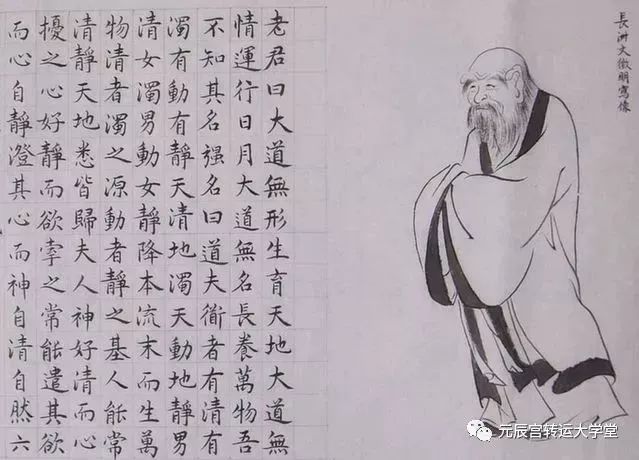 長洲文徵明寫像
老君曰大道無形生育天地大道無
情運行日月大道無名長養萬物吾
不知其名强名曰道夫衜者有清有
濁有動有靜天清地濁天動地靜男
清女濁男動女靜降本流末而生萬
物清者濁之源動者靜之基人能常
清靜天地悉皆歸夫人神好清而心
擾之心好靜而欲牽之常能遣其欲
而心自靜澄其心而神自清自然六
元辰宫转运大学堂